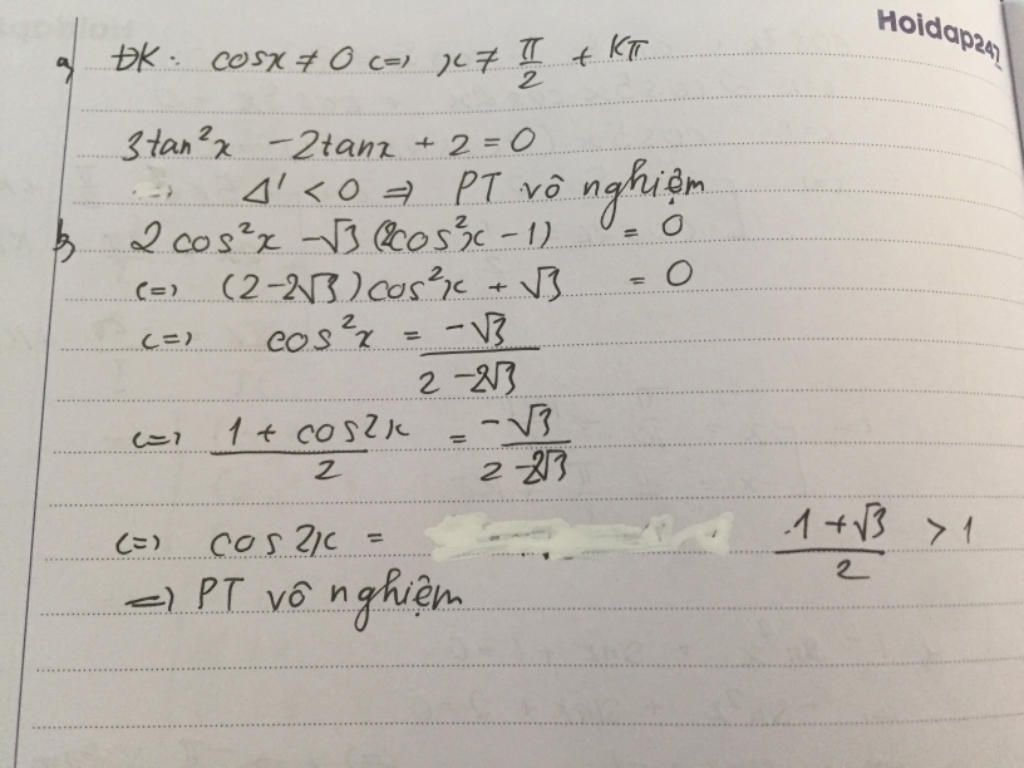 Hoidap247
a, ĐK: cosx ≠ 0 <=> x ≠ π/2 + Kπ
3tan²x - 2tanx + 2 = 0
=> Δ' < 0 => PT vô nghiệm
b, 2cos²x - √3 (2cos²x - 1) = 0
<=> (2 - 2√3)cos²x + √3 = 0
<=> cos²x = -√3 / (2 - 2√3)
<=> (1 + cos2x) / 2 = -√3 / (2 - 2√3)
<=> cos2x = (1 + √3) / 2 > 1
=> PT vô nghiệm